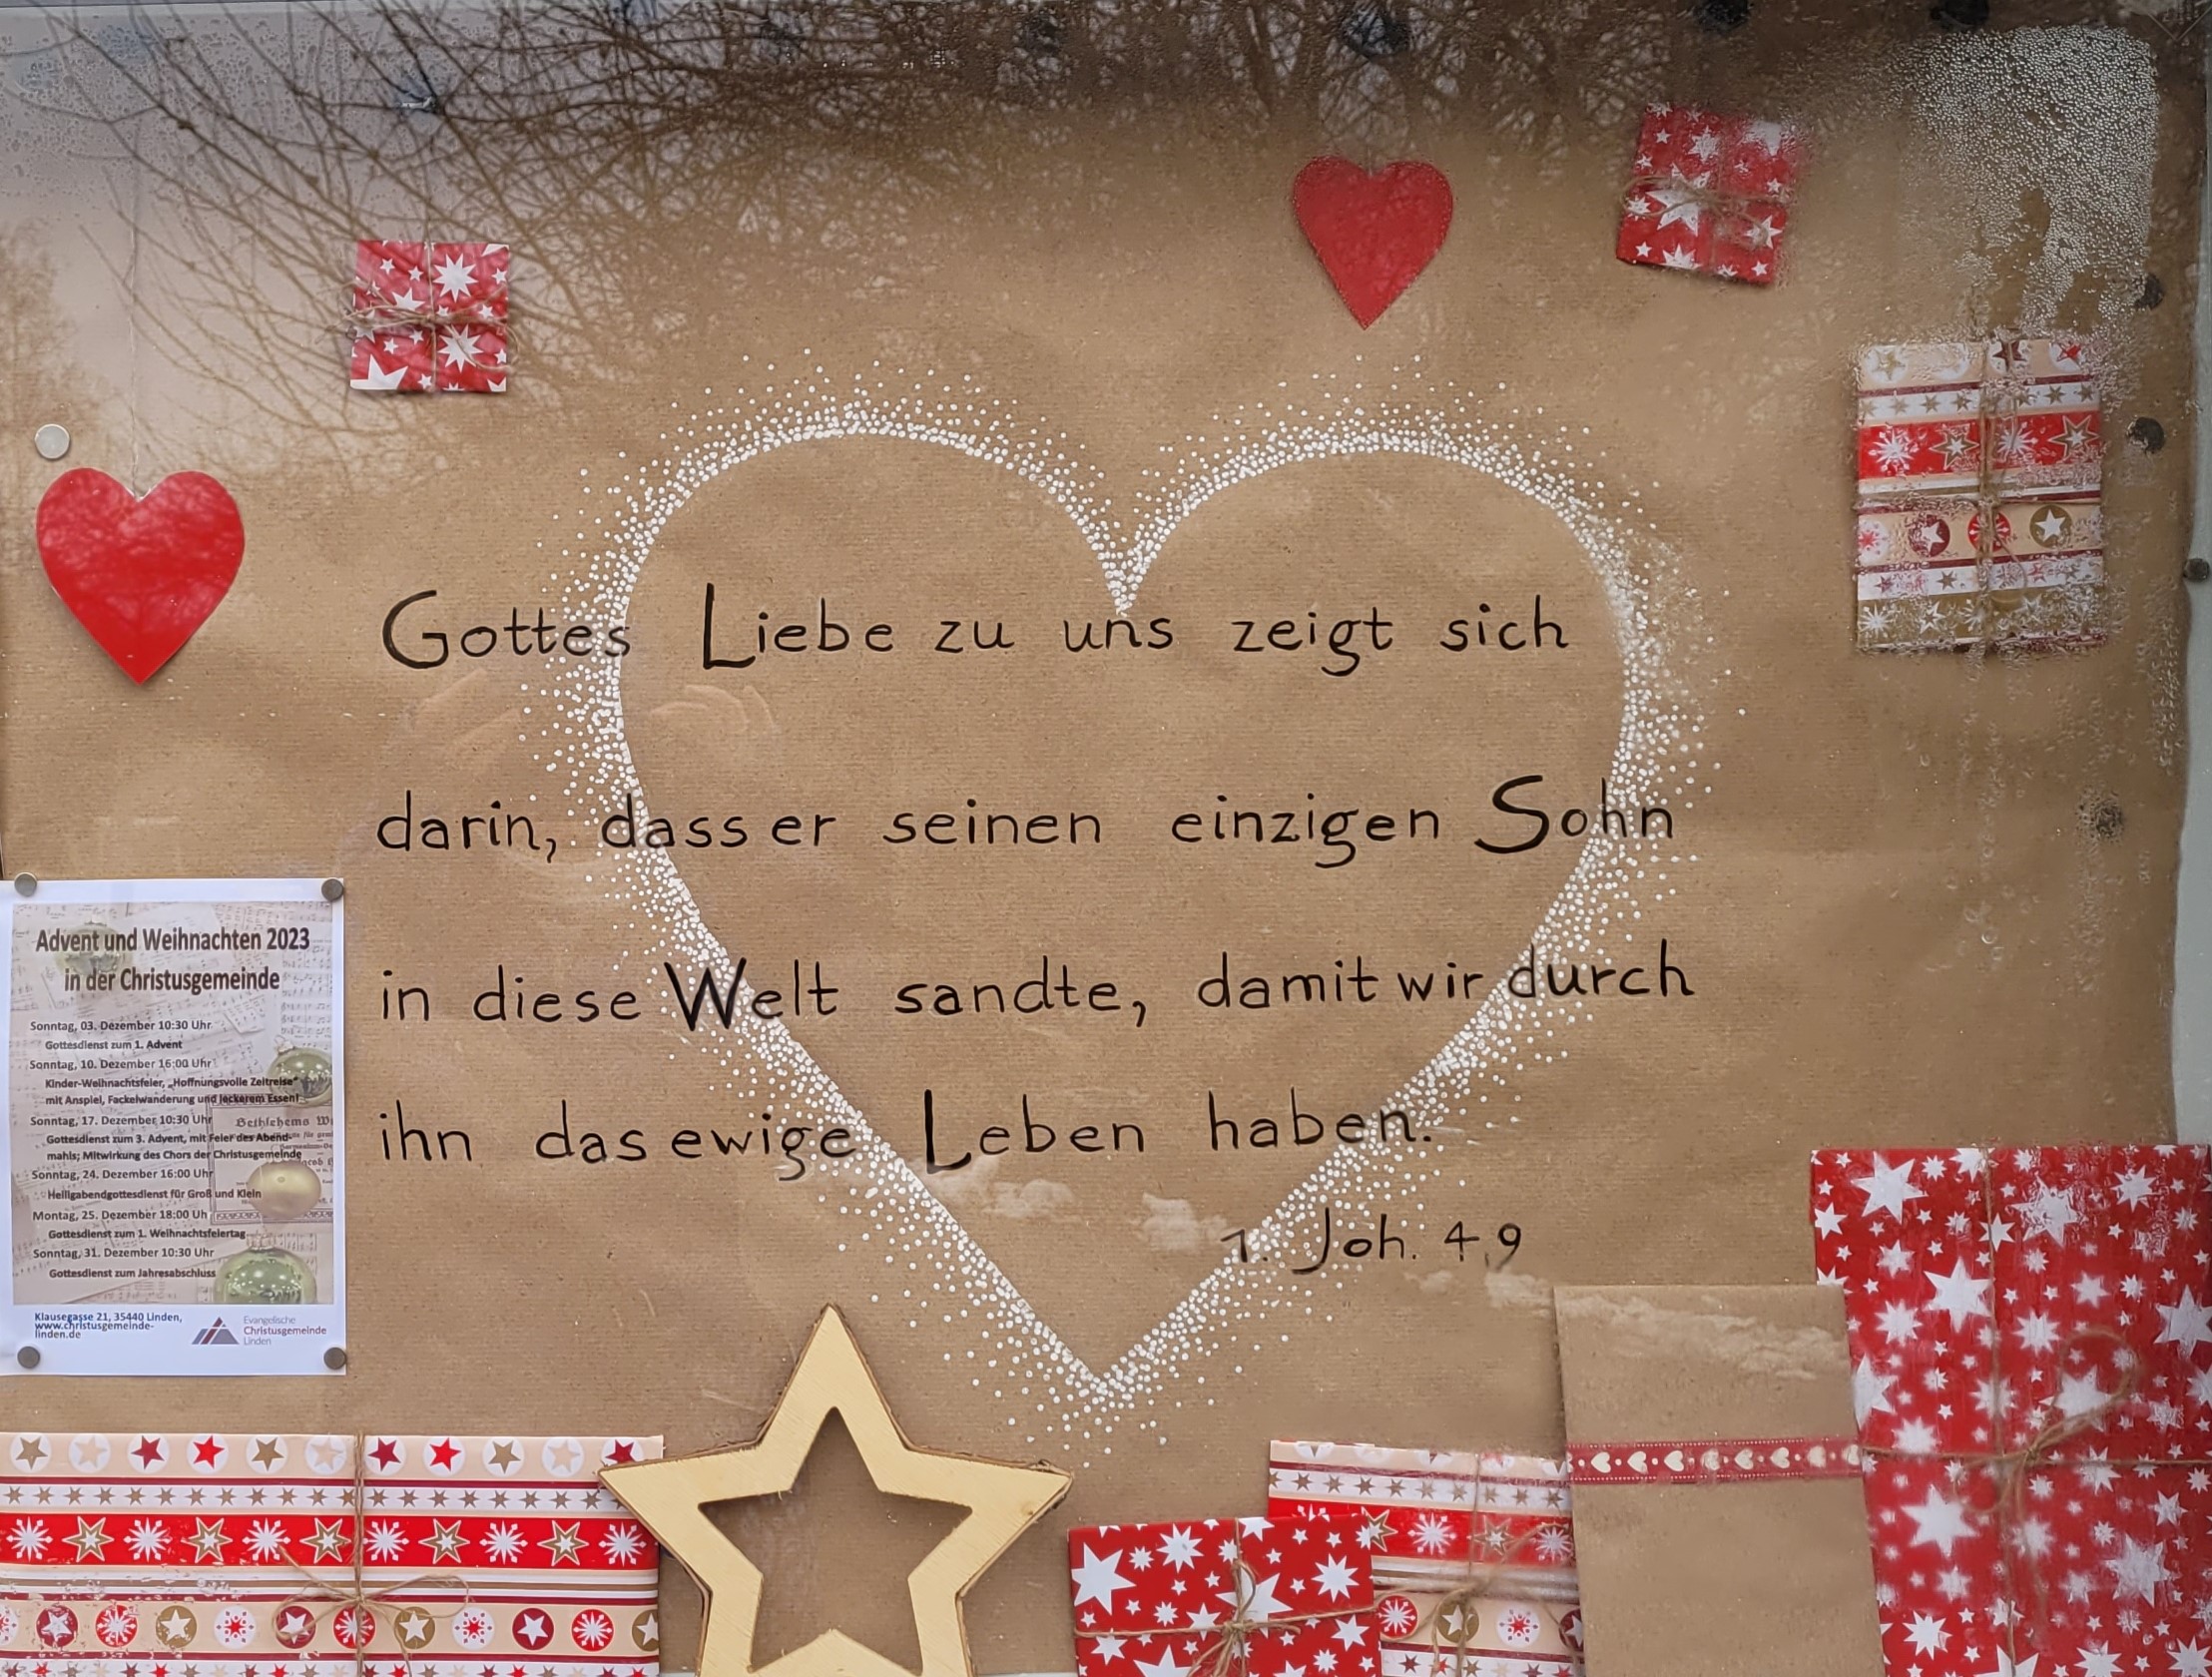 Gottes Liebe zu uns zeigt sich
darin, dass er seinen einzigen Sohn
in diese Welt sandte, damit wir durch
ihn das ewige Leben haben.
1. Joh. 4,9
Advent und Weihnachten 2023
in der Christusgemeinde
Sonntag, 03. Dezember 10:30 Uhr
Gottesdienst zum 1. Advent
Sonntag, 10. Dezember 16:00 Uhr
Kinder-Weihnachtsfeier, „Hoffnungsvolle Zeitreise"
mit Anspiel, Fackelwanderung und leckerem Essen!
Sonntag, 17. Dezember 10:30 Uhr
Gottesdienst zum 3. Advent, mit Feier des Abend-
mahls; Mitwirkung des Chors der Christusgemeinde
Sonntag, 24. Dezember 16:00 Uhr
Heiligabendgottesdienst für Groß und Klein
Montag, 25. Dezember 18:00 Uhr
Gottesdienst zum 1. Weihnachtsfeiertag
Sonntag, 31. Dezember 10:30 Uhr
Gottesdienst zum Jahresabschluss
Klausegasse 21, 35440 Linden,
www.christusgemeinde-
linden.de
Evangelische
Christusgemeinde
Linden